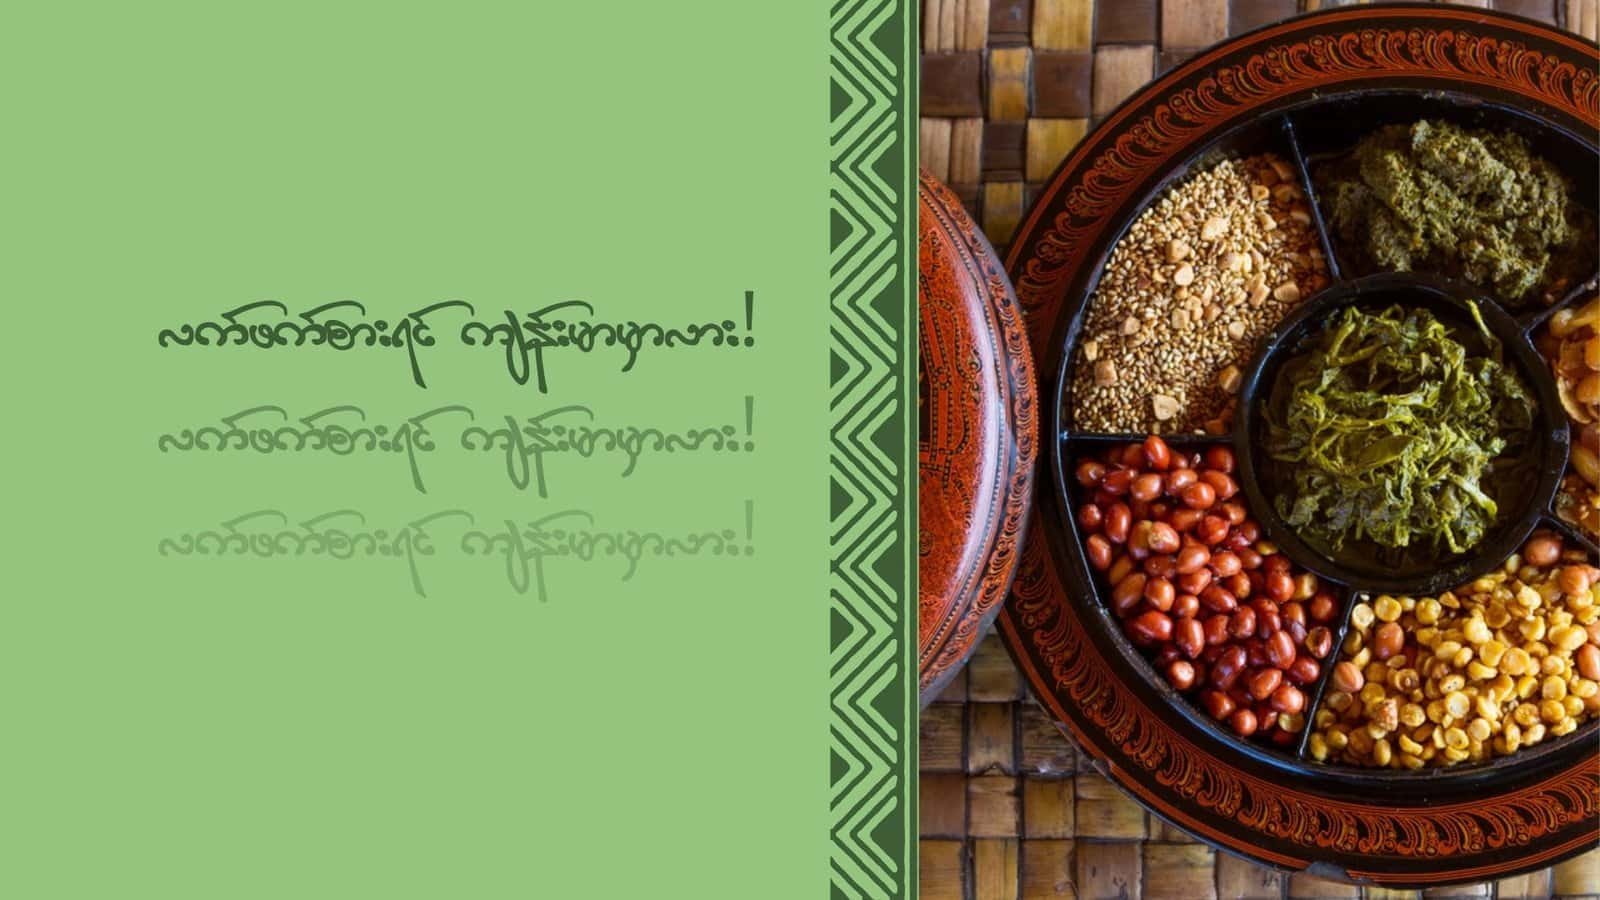 လက်ဖက်စားရင် ကျန်းမာမှာလား!
လက်ဖက်စားရင် ကျန်းမာမှာလား!
လက်ဖက်စားရင် ကျန်းမာမှာလား!